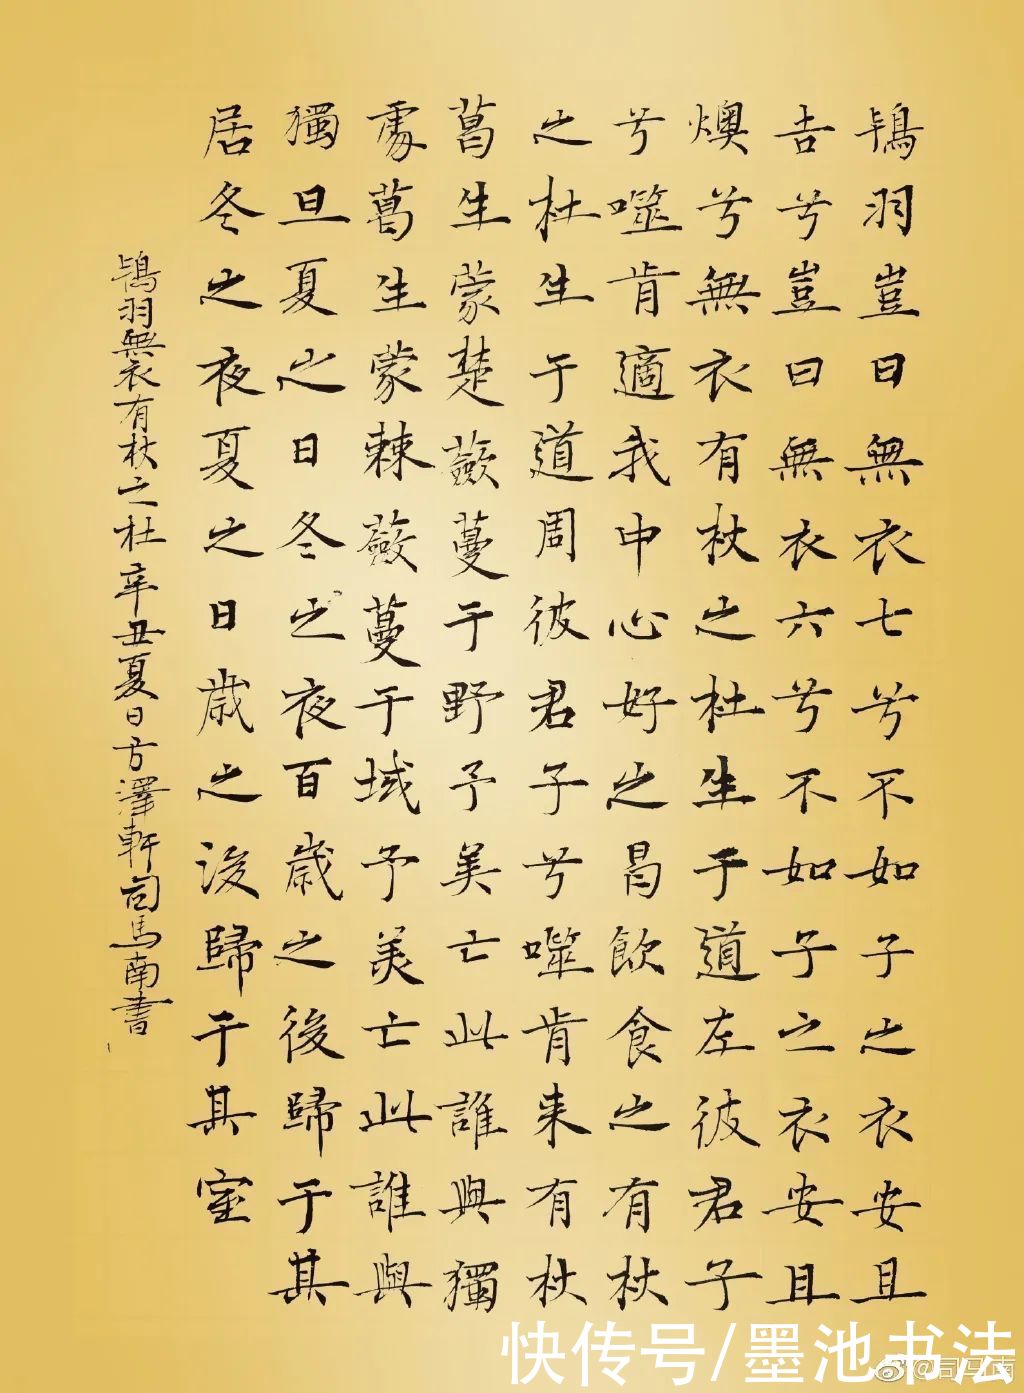 鴇羽豈曰無衣七兮不如子之衣安且
吉兮豈曰無衣六兮不如子之衣安且
燠兮無衣有杕之杜生于道左彼君子
兮噬肯適我中心好之曷飲食之有杕
之杜生于道周彼君子兮噬肯来有杕
葛生蒙楚蘞蔓于野予美亡此誰與獨
處葛生蒙棘蘞蔓于域予美亡此誰與
獨旦夏之日冬之夜百歲之後歸于其
居冬之夜夏之日歲之後歸于其室
鴇羽無衣有杕之杜 辛丑夏日方澤軒司馬南書
快传号/墨池书法
@司马南